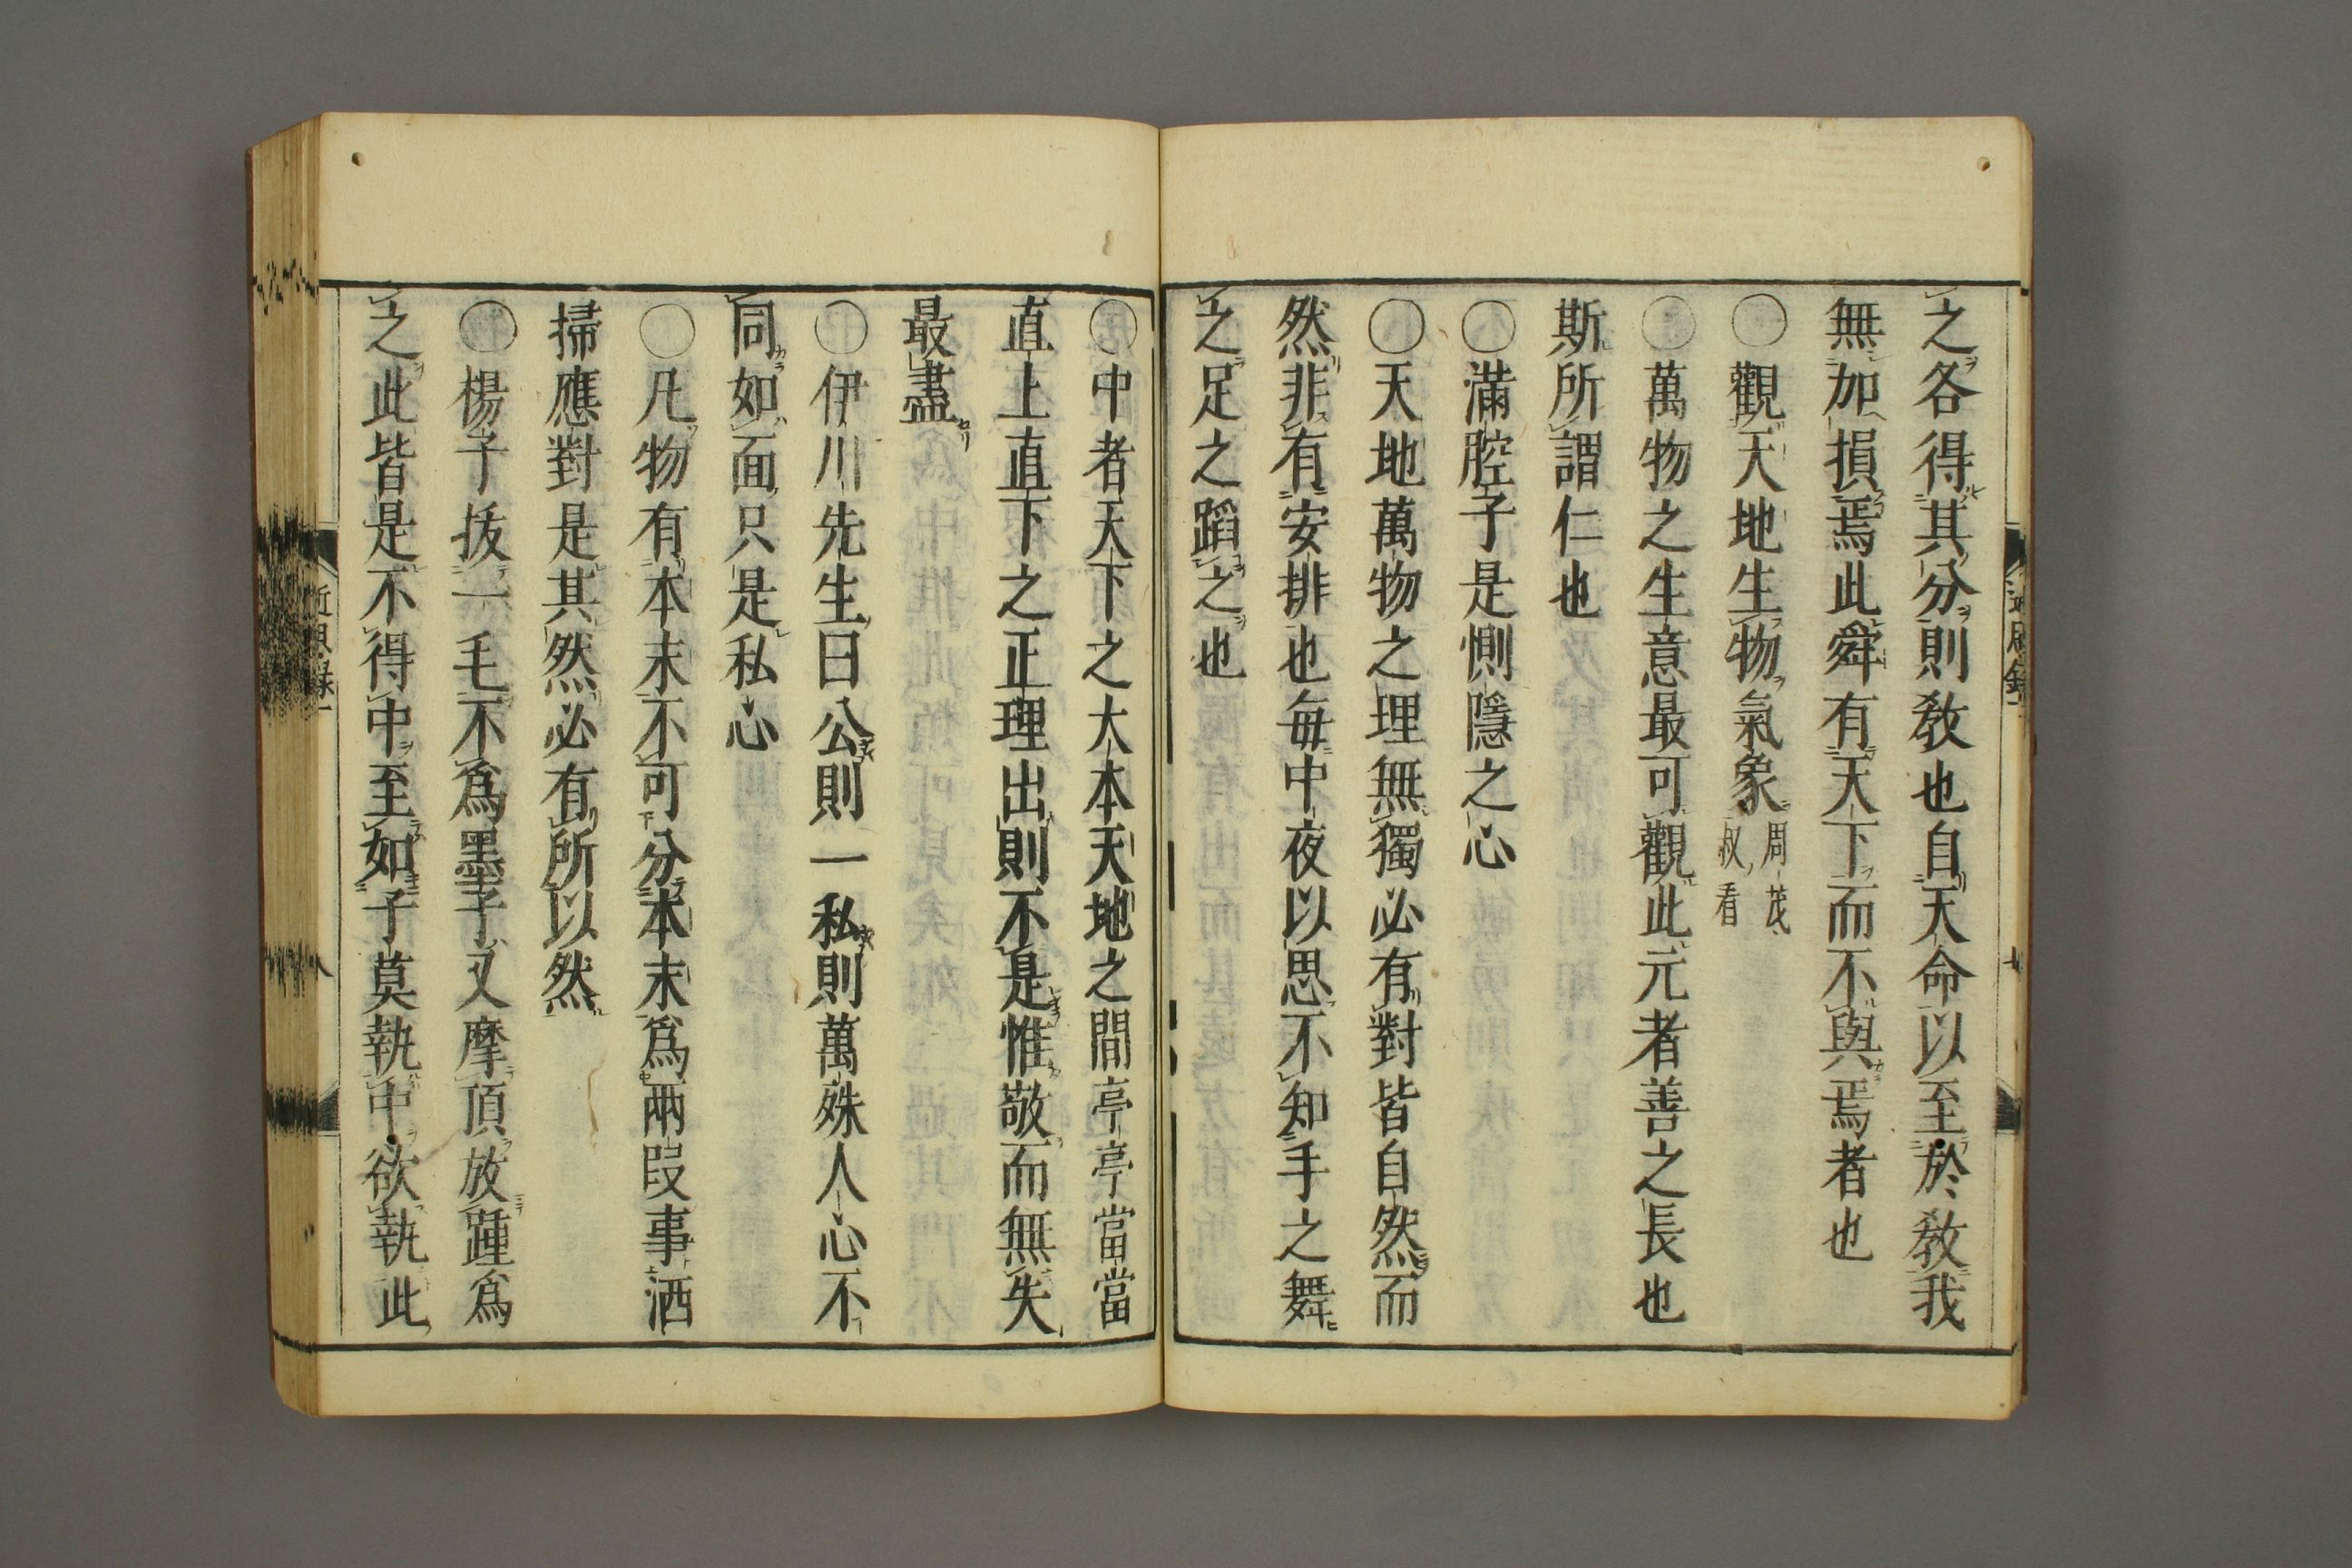 之各得其分則敎也自天命以至於敎我
無加損焉此舜有天下而不與焉者也
〇觀天地生物氣象周茂
叔看
〇萬物之生意最可觀此元者善之長也
斯所謂仁也
〇滿腔子是惻隱之心
〇天地萬物之理無獨必有對皆自然而
然非有安排也每中夜以思不知手之舞
之足之蹈之也
〇中者天下之大本天地之間亭亭當當
直上直下之正理出則不是惟敬而無失
最盡
〇伊川先生曰公則一私則萬殊人心不
同如面只是私心
〇凡物有本末不可分本末爲兩段事洒
掃應對是其然必有所以然
〇楊子拔一毛不爲墨子又摩頂放踵爲
之此皆是不得中至如子莫執中欲執此
近思録一
八